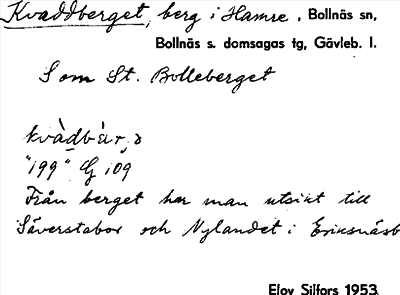 Kvaddberget, berg i Hamre. Bollnäs sn,
Bollnäs s. domsagas tg, Gävleb. l.
Som St. Bolleberget
"199" G 109
Från berget har man utsikt till
Säverstabor och Nylandet i Eriksnäsb
Elov Silfors 1953.